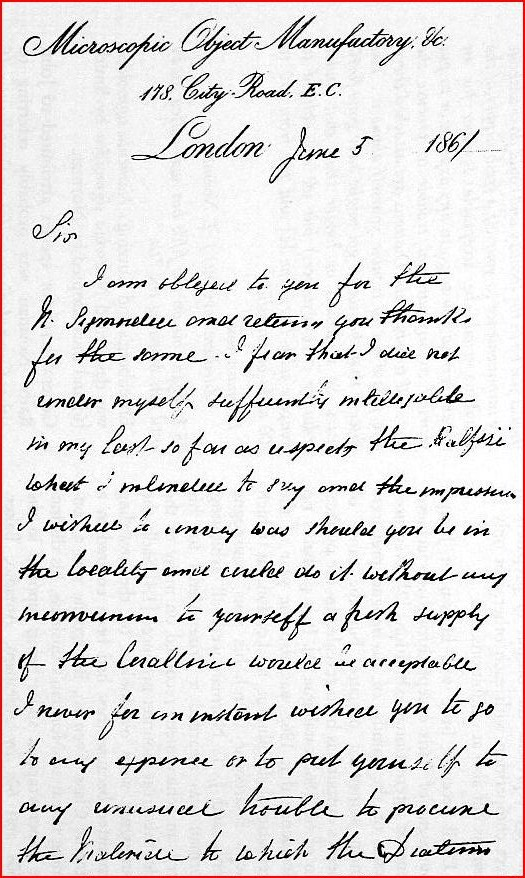 Microscopic Object Manufactory, &c.
178, City Road, E.C.
London June 5 1861
Sir
I am obliged to you for the
N. Sigmoidea and return you thanks
for the same. I fear that I did not
render myself suffiently intelligable
in my last so far as respects the Ralfsii
what I intended to say and the impression
I wished to convey was should you be in
the locality and could do it without any
inconvenience to yourself a fresh supply
of the Coralline would be acceptable
I never for an instant wished you to go
to any expence or to put yourself to
any unusual trouble to procure
the Material to which the Diatoms